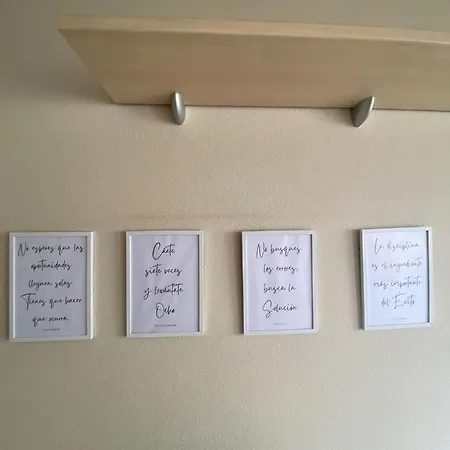 No esperes que las
oportunidades
lleguen solas.
Tienes que hacer
que ocurra
Caete
siete veces
y levantate
Ocho
No busques
los errores,
busca la
Solución
La disciplina
es el ingrediente
más importante
del Exito